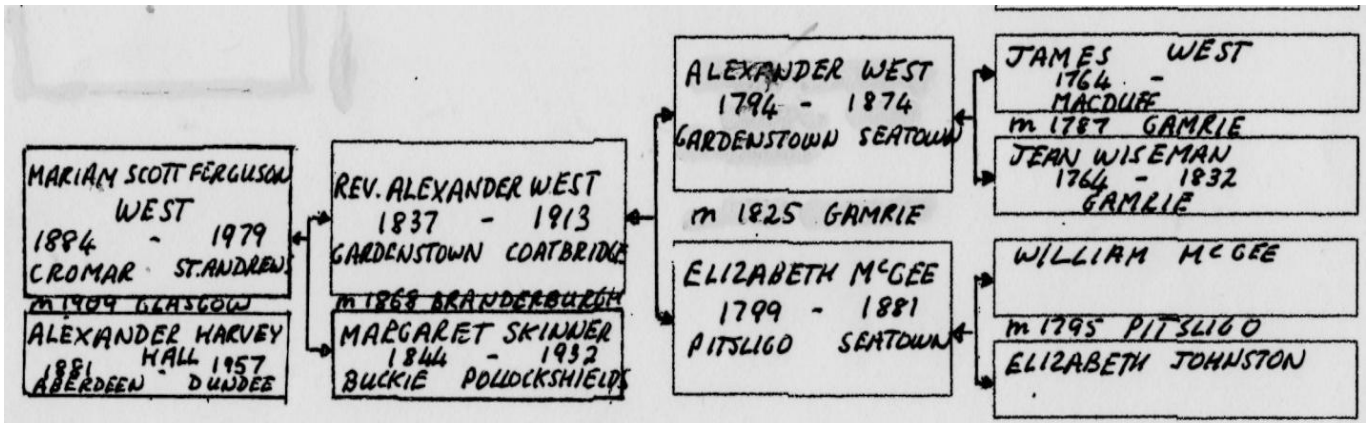 MARIAM SCOTT FERGUSON
WEST
1884 - 1979
CROMAR ST.ANDREWS
m 1909 GLASGOW
ALEXANDER HARVEY
HALL
1881 - 1957
ABERDEEN DUNDEE
REV. ALEXANDER WEST
1837 - 1913
GARDENSTOWN COATBRIDGE
m 1868 BRANDERBURGH
MARGARET SKINNER
1844 - 1932
BUCKIE POLLOCKSHIELDS
ALEXANDER WEST
1794 - 1874
GARDENSTOWN SEATOWN
m 1825 GAMRIE
ELIZABETH McGEE
1799 - 1881
PITSLIGO SEATOWN
JAMES WEST
1764 -
MACDUFF
m 1787 GAMRIE
JEAN WISEMAN
1764 - 1832
GAMRIE
WILLIAM McGEE
m 1795 PITSLIGO
ELIZABETH JOHNSTON